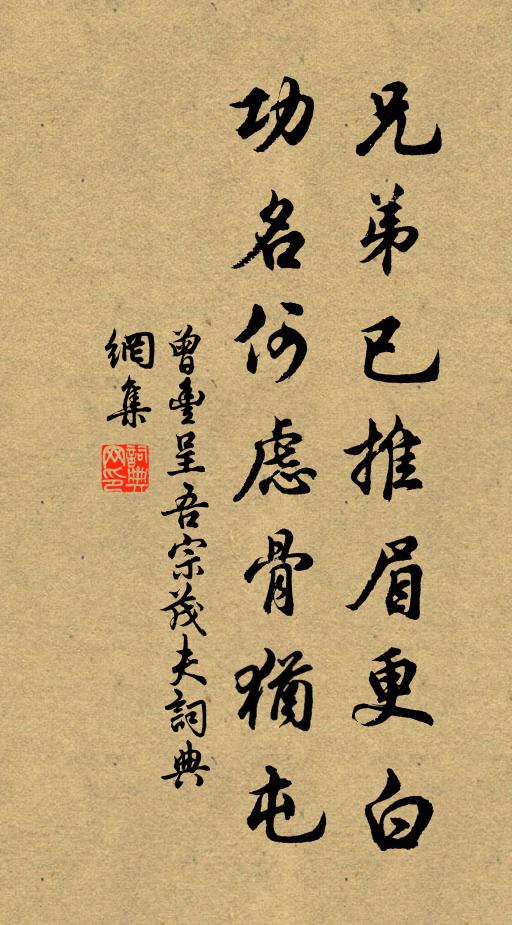 兄弟已推眉更白
功名何慮骨猶屯
曾豐呈吾宗茂夫詞典
網集
詞典网印